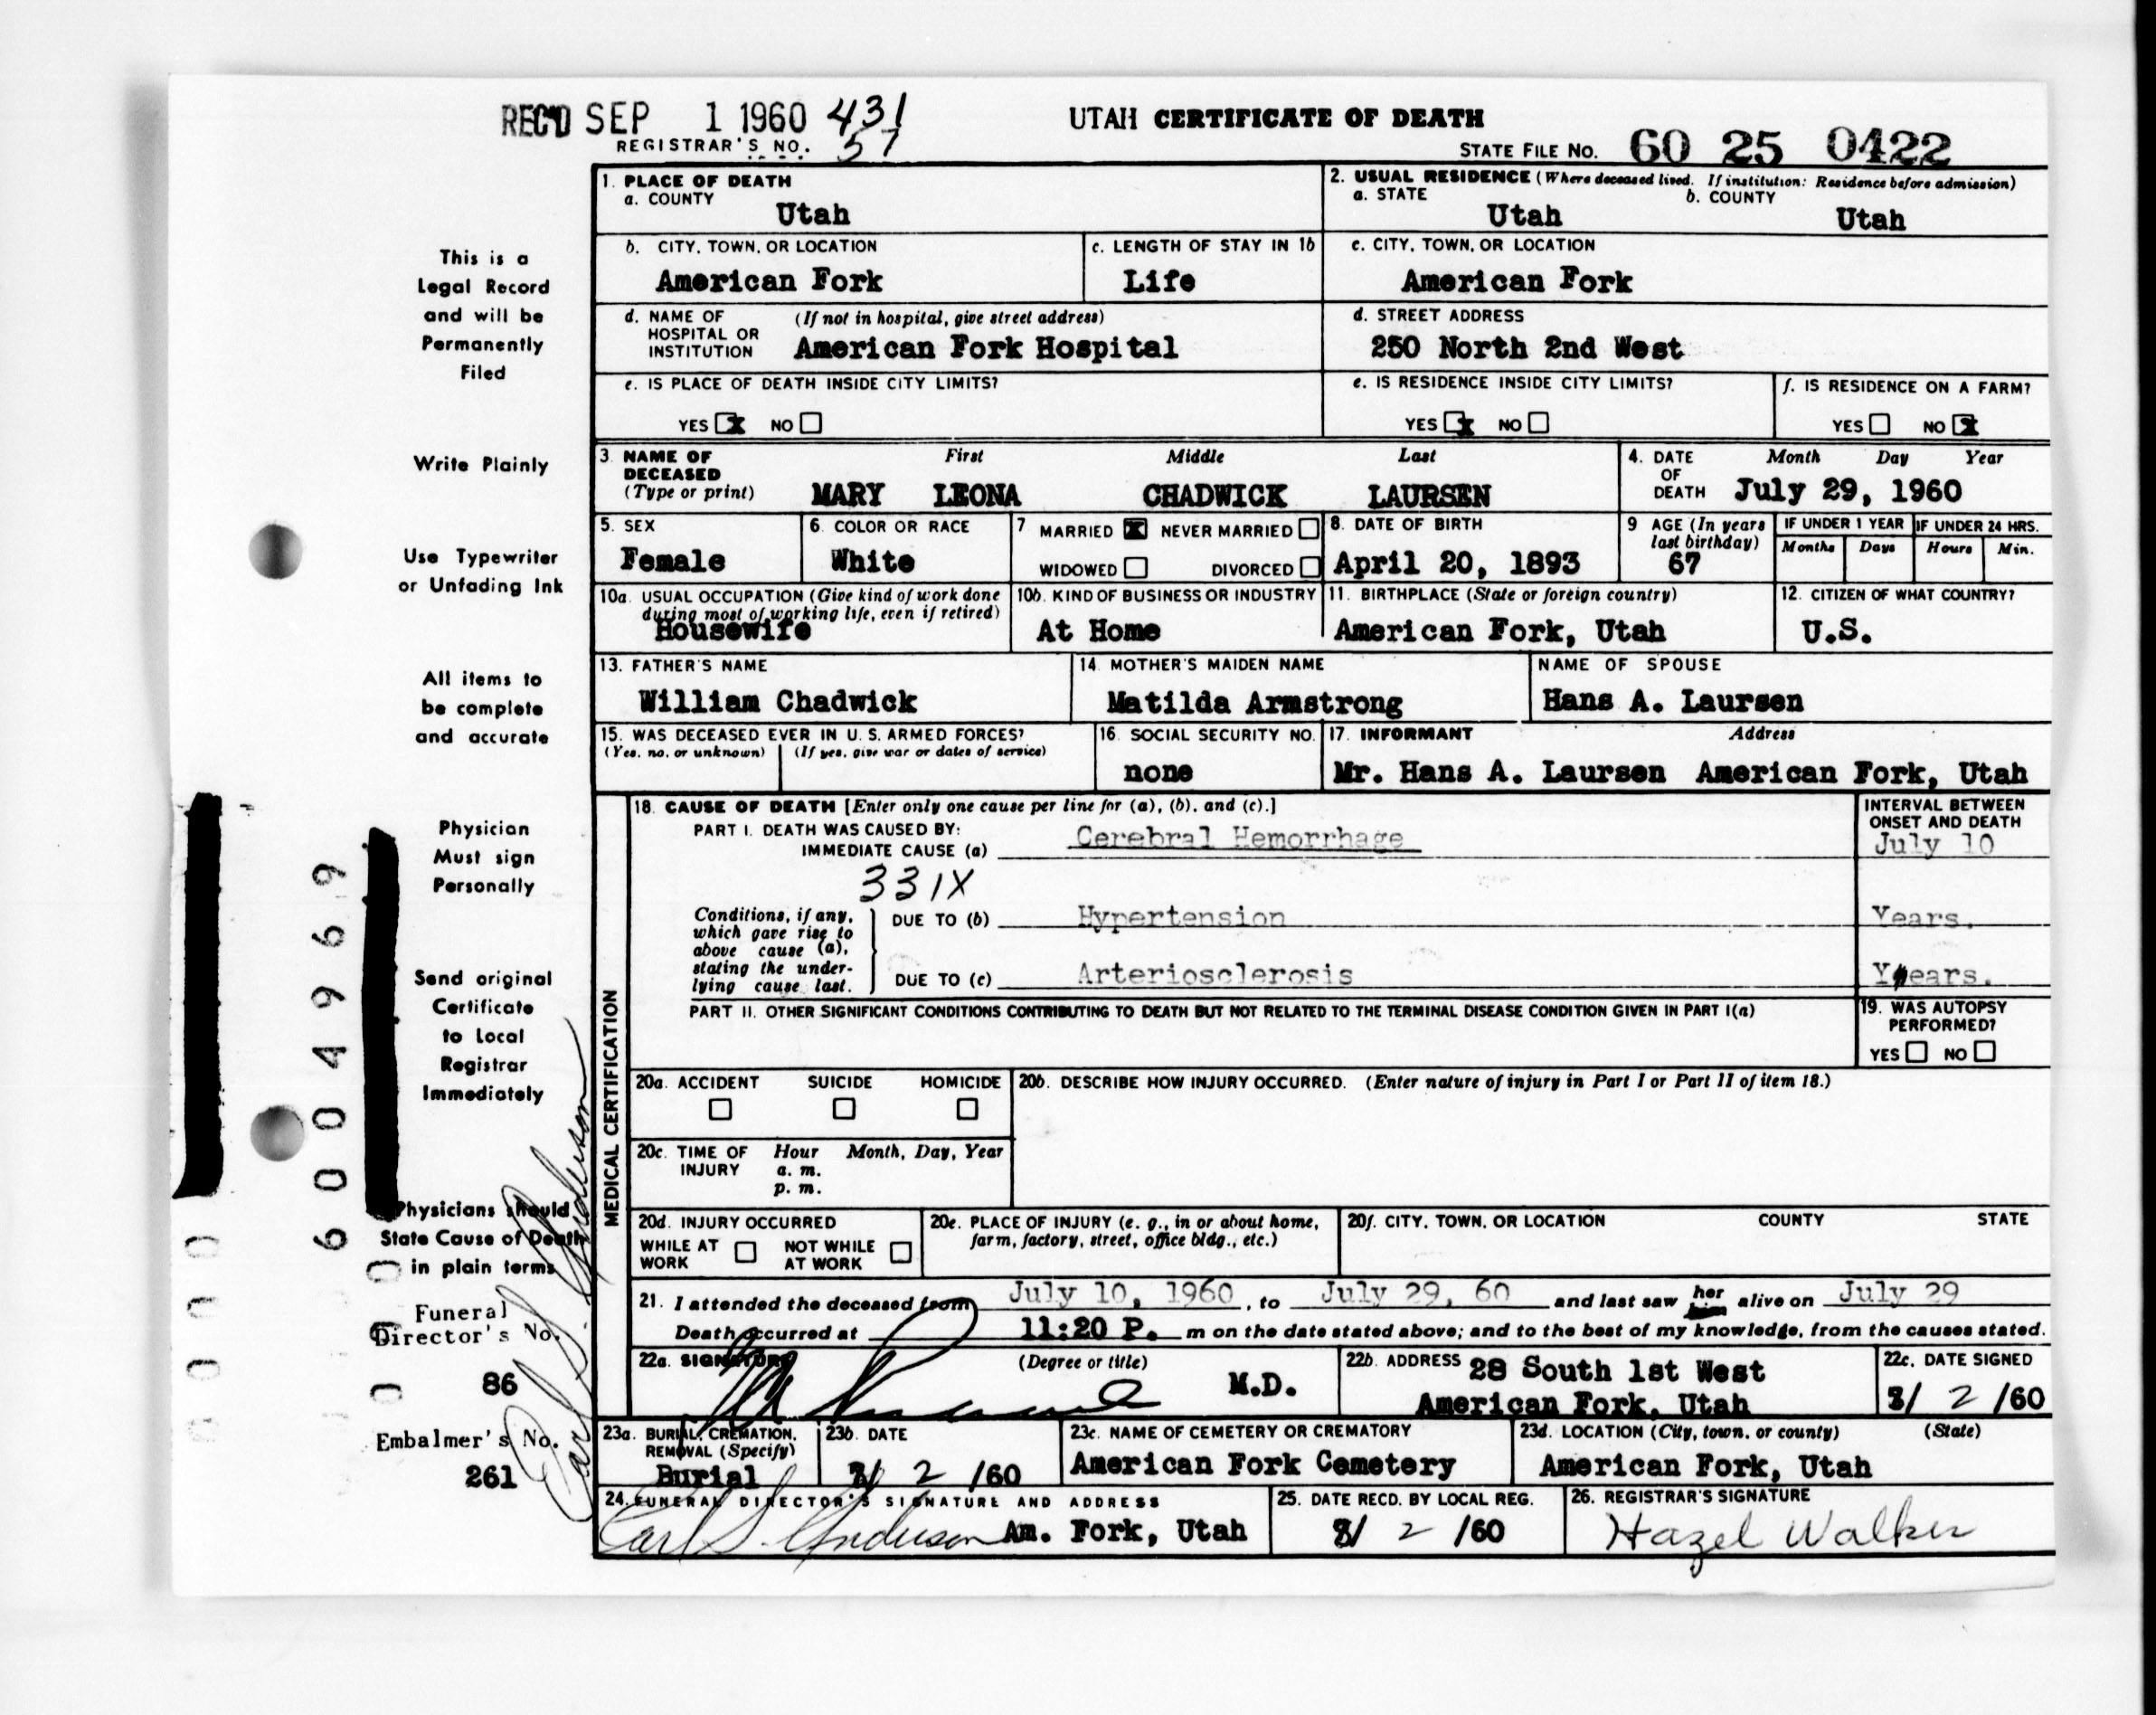 REC'D SEP 1 1960 431
REGISTRAR'S NO. 57
UTAH CERTIFICATE OF DEATH
STATE FILE NO. 60 25 0422
This is a
Legal Record
and will be
Permanently
Filed
Write Plainly
Use Typewriter
or Unfading Ink
All items to
be complete
and accurate
Physician
Must sign
Personally
Send original
Certificate
to Local
Registrar
Immediately
Physicians should
State Cause of Death
in plain terms
Funeral
Director's No.
86
Embalmer's No.
261
Earl S. Anderson
6004969
1. PLACE OF DEATH
a. COUNTY
Utah
2. USUAL RESIDENCE (Where deceased lived. If institution: Residence before admission)
a. STATE b. COUNTY
Utah Utah
b. CITY, TOWN, OR LOCATION
American Fork
c. LENGTH OF STAY IN 1b
Life
c. CITY, TOWN, OR LOCATION
American Fork
d. NAME OF (If not in hospital, give street address)
HOSPITAL OR
INSTITUTION American Fork Hospital
d. STREET ADDRESS
250 North 2nd West
e. IS PLACE OF DEATH INSIDE CITY LIMITS?
YES x NO
e. IS RESIDENCE INSIDE CITY LIMITS?
YES x NO
f. IS RESIDENCE ON A FARM?
YES NO x
3. NAME OF First Middle Last
DECEASED
(Type or print) MARY LEONA CHADWICK LAURSEN
4. DATE Month Day Year
OF
DEATH July 29, 1960
5. SEX
Female
6. COLOR OR RACE
White
7 MARRIED x NEVER MARRIED
WIDOWED DIVORCED
8. DATE OF BIRTH
April 20, 1893
9 AGE (In years
last birthday)
67
IF UNDER 1 YEAR IF UNDER 24 HRS.
Months Days Hours Min.
10a. USUAL OCCUPATION (Give kind of work done
during most of working life, even if retired)
Housewife
10b. KIND OF BUSINESS OR INDUSTRY
At Home
11. BIRTHPLACE (State or foreign country)
American Fork, Utah
12. CITIZEN OF WHAT COUNTRY?
U.S.
13. FATHER'S NAME
William Chadwick
14. MOTHER'S MAIDEN NAME
Matilda Armstrong
NAME OF SPOUSE
Hans A. Laursen
15. WAS DECEASED EVER IN U. S. ARMED FORCES?
(Yes, no, or unknown) (If yes, give war or dates of service)
16. SOCIAL SECURITY NO.
none
17. INFORMANT Address
Mr. Hans A. Laursen American Fork, Utah
MEDICAL CERTIFICATION
18. CAUSE OF DEATH [Enter only one cause per line for (a), (b), and (c).]
PART I. DEATH WAS CAUSED BY:
IMMEDIATE CAUSE (a) Cerebral Hemorrhage
INTERVAL BETWEEN
ONSET AND DEATH
July 10
331X
Conditions, if any,
which gave rise to
above cause (a),
stating the under-
lying cause last.
DUE TO (b) Hypertension Years.
DUE TO (c) Arteriosclerosis Years.
PART II. OTHER SIGNIFICANT CONDITIONS CONTRIBUTING TO DEATH BUT NOT RELATED TO THE TERMINAL DISEASE CONDITION GIVEN IN PART I(a)
19. WAS AUTOPSY
PERFORMED?
YES NO
20a. ACCIDENT SUICIDE HOMICIDE
20b. DESCRIBE HOW INJURY OCCURRED. (Enter nature of injury in Part I or Part II of item 18.)
20c. TIME OF Hour Month, Day, Year
INJURY a. m.
p. m.
20d. INJURY OCCURRED
WHILE AT NOT WHILE
WORK AT WORK
20e. PLACE OF INJURY (e. g., in or about home,
farm, factory, street, office bldg., etc.)
20f. CITY, TOWN, OR LOCATION COUNTY STATE
21. I attended the deceased from July 10, 1960, to July 29, 60 and last saw her him alive on July 29
Death occurred at 11:20 P. m on the date stated above; and to the best of my knowledge, from the causes stated.
22a. SIGNATURE (Degree or title)
M.D.
22b. ADDRESS 28 South 1st West
American Fork, Utah
22c. DATE SIGNED
8/ 2 /60
23a. BURIAL, CREMATION,
REMOVAL (Specify)
Burial
23b. DATE
8/ 2 /60
23c. NAME OF CEMETERY OR CREMATORY
American Fork Cemetery
23d. LOCATION (City, town, or county) (State)
American Fork, Utah
24. FUNERAL DIRECTOR'S SIGNATURE AND ADDRESS
Earl S. Anderson Am. Fork, Utah
25. DATE RECD. BY LOCAL REG.
8/ 2 /60
26. REGISTRAR'S SIGNATURE
Hazel Walker